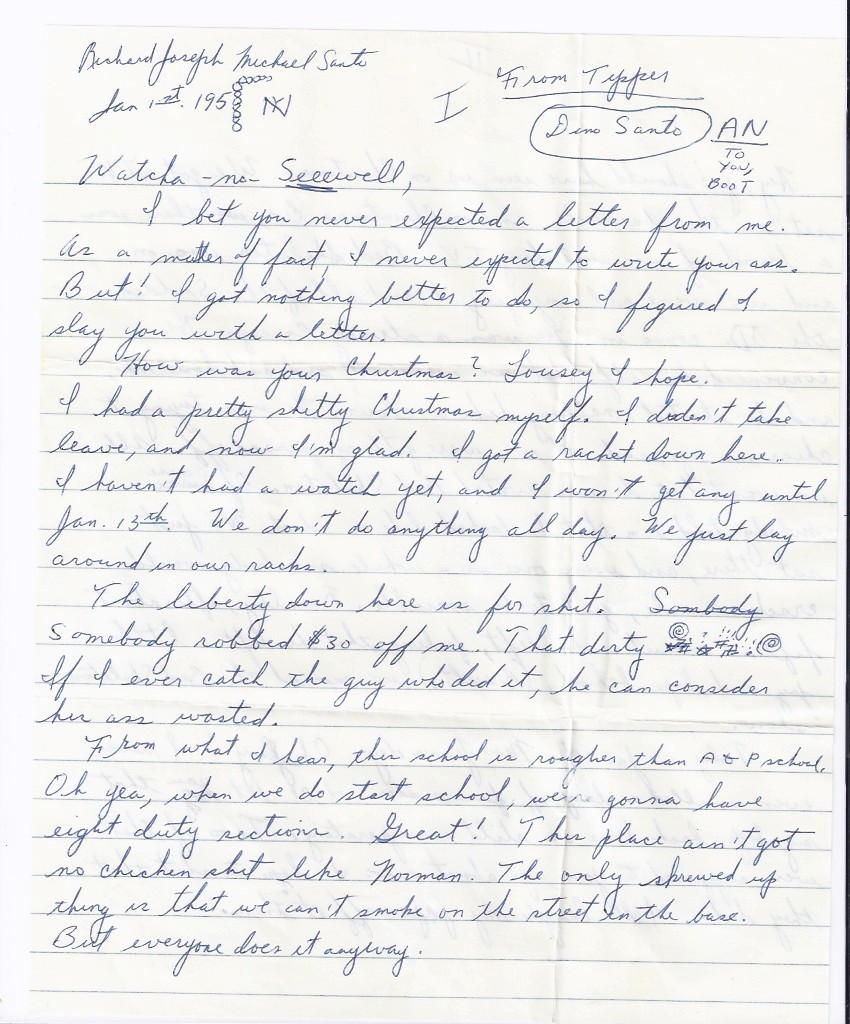 Richard Joseph Michael Santo
Jan 1st. 195
I
From Tipper
Dino Santo AN
TO
YOU,
BOOT
Watcha-no-Seeewell,
I bet you never expected a letter from me.
As a matter of fact, I never expected to write your ass.
But! I got nothing better to do, so I figured I
slay you with a letter.
How was your Christmas? Lousey I hope.
I had a pretty shitty Christmas myself. I didn't take
leave, and now I'm glad. I got a rachet down here.
I haven't had a watch yet, and I won't get any until
Jan. 13th. We don't do anything all day. We just lay
around in our racks.
The liberty down here is for shit. Sombody
Somebody robbed $30 off me. That dirty
If I ever catch the guy who did it, he can consider
his ass wasted.
From what I hear, this school is rougher than A & P school.
Oh yea, when we do start school, we're gonna have
eight duty sections. Great! This place ain't got
no chicken shit like Norman. The only skrewed up
thing is that we can't smoke on the street in the base.
But everyone does it anyway.